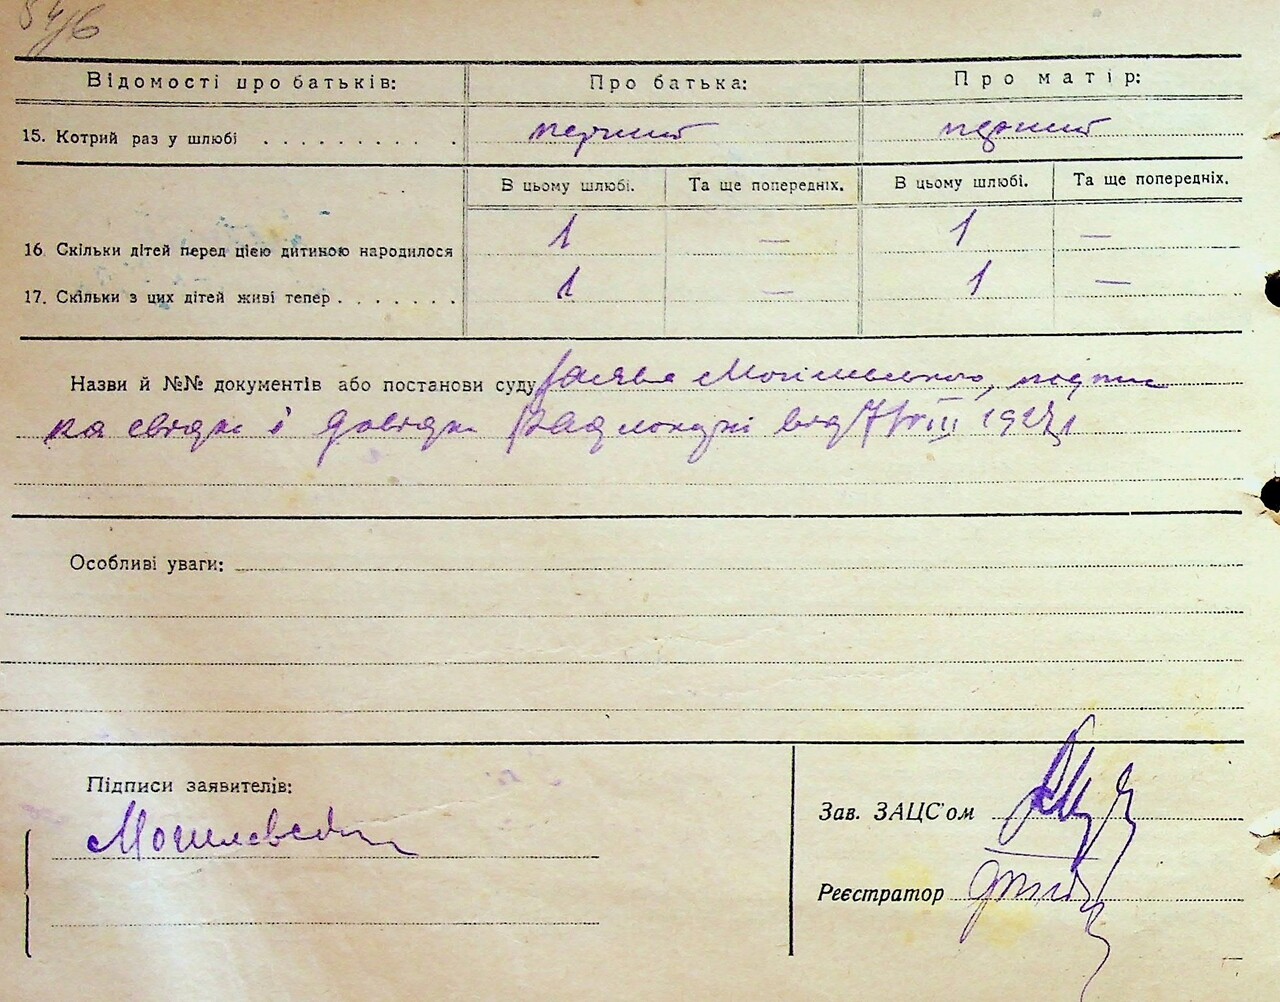 54/6
Відомості про батьків: Про батька: Про матір:
15. Котрий раз у шлюбі . . . . . . . . . . перший перший
В цьому шлюбі. Та ще попередніх. В цьому шлюбі. Та ще попередніх.
16. Скільки дітей перед цією дитиною народилося 1 — 1 —
17. Скільки з цих дітей живі тепер . . . . . . . 1 — 1 —
Назви й №№ документів або постанови суду Заява Могилевського, підпис
ка свідк і довідк від 7/VIII 192
Особливі уваги:
Підписи заявителів:
Могилевськ
Зав. ЗАЦС'ом
Реєстратор